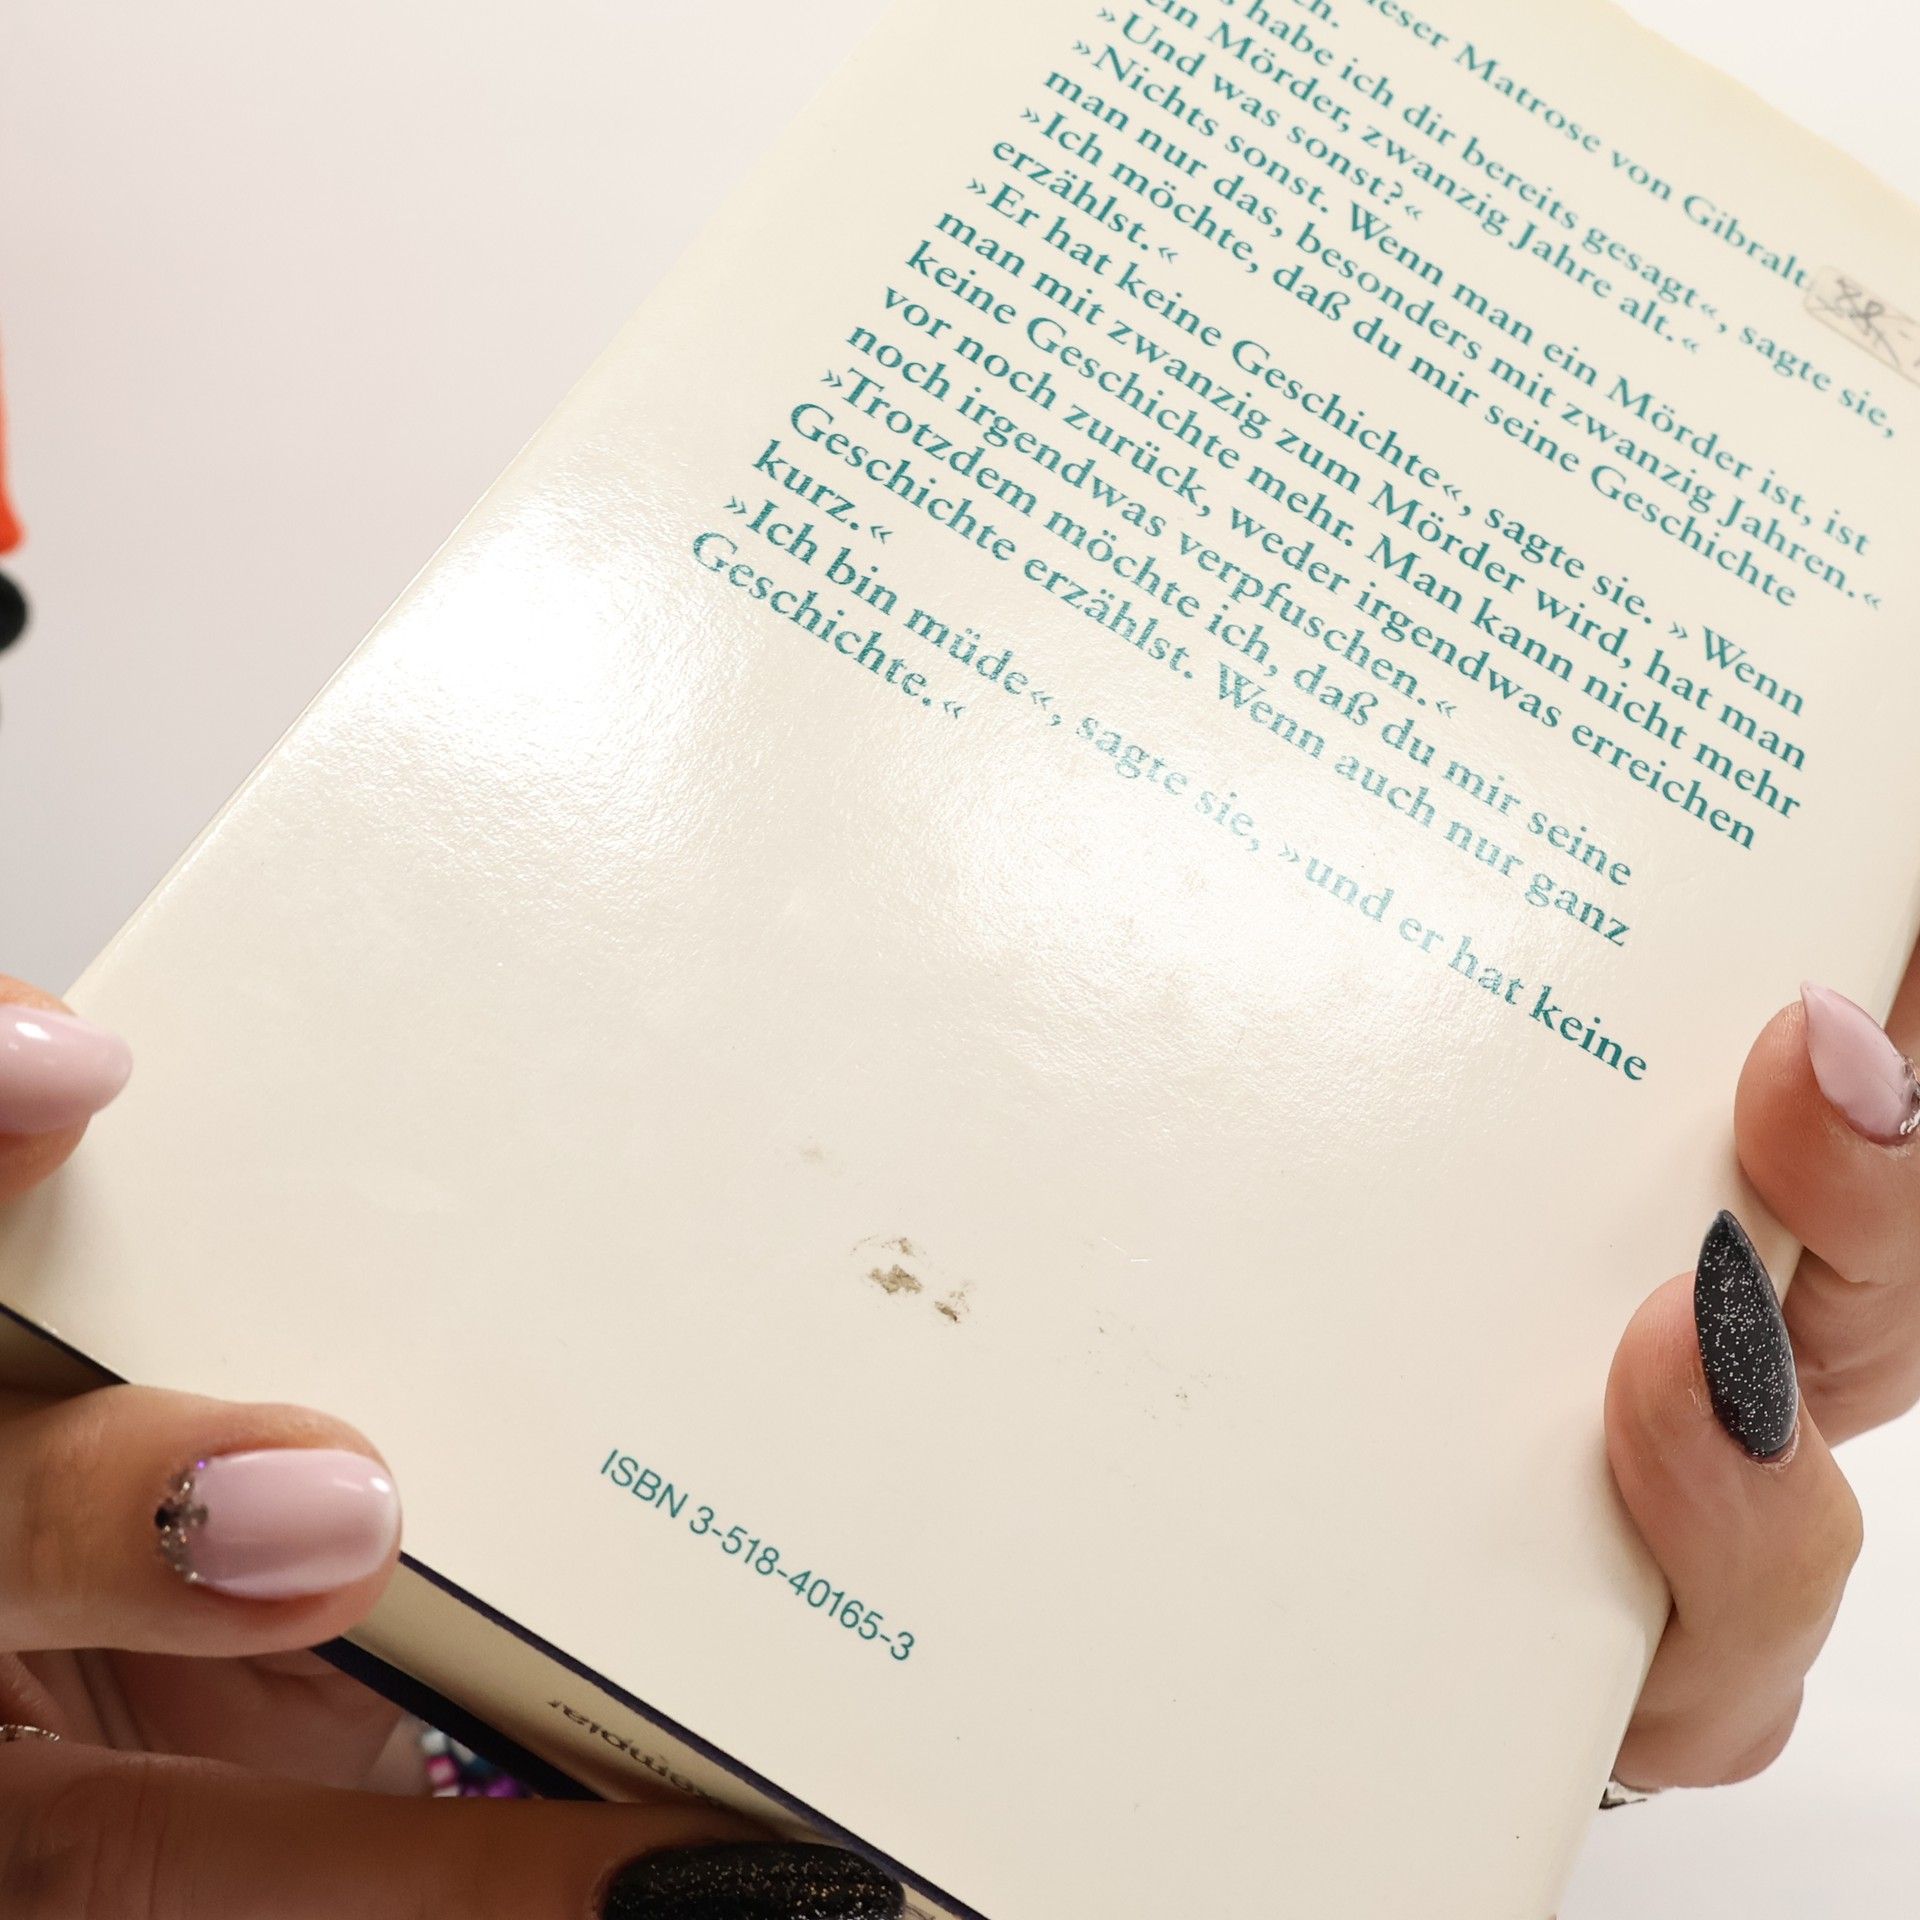 dieser Matrose von Gibralt
habe ich dir bereits gesagt«, sagte sie,
ein Mörder, zwanzig Jahre alt.«
»Und was sonst?«
»Nichts sonst. Wenn man ein Mörder ist, ist
man nur das, besonders mit zwanzig Jahren.«
»Ich möchte, daß du mir seine Geschichte
erzählst.«
»Er hat keine Geschichte«, sagte sie. »Wenn
man mit zwanzig zum Mörder wird, hat man
keine Geschichte mehr. Man kann nicht mehr
vor noch zurück, weder irgendwas erreichen
noch irgendwas verpfuschen.«
»Trotzdem möchte ich, daß du mir seine
Geschichte erzählst. Wenn auch nur ganz
kurz.«
»Ich bin müde«, sagte sie, »und er hat keine
Geschichte.«
ISBN 3-518-40165-3